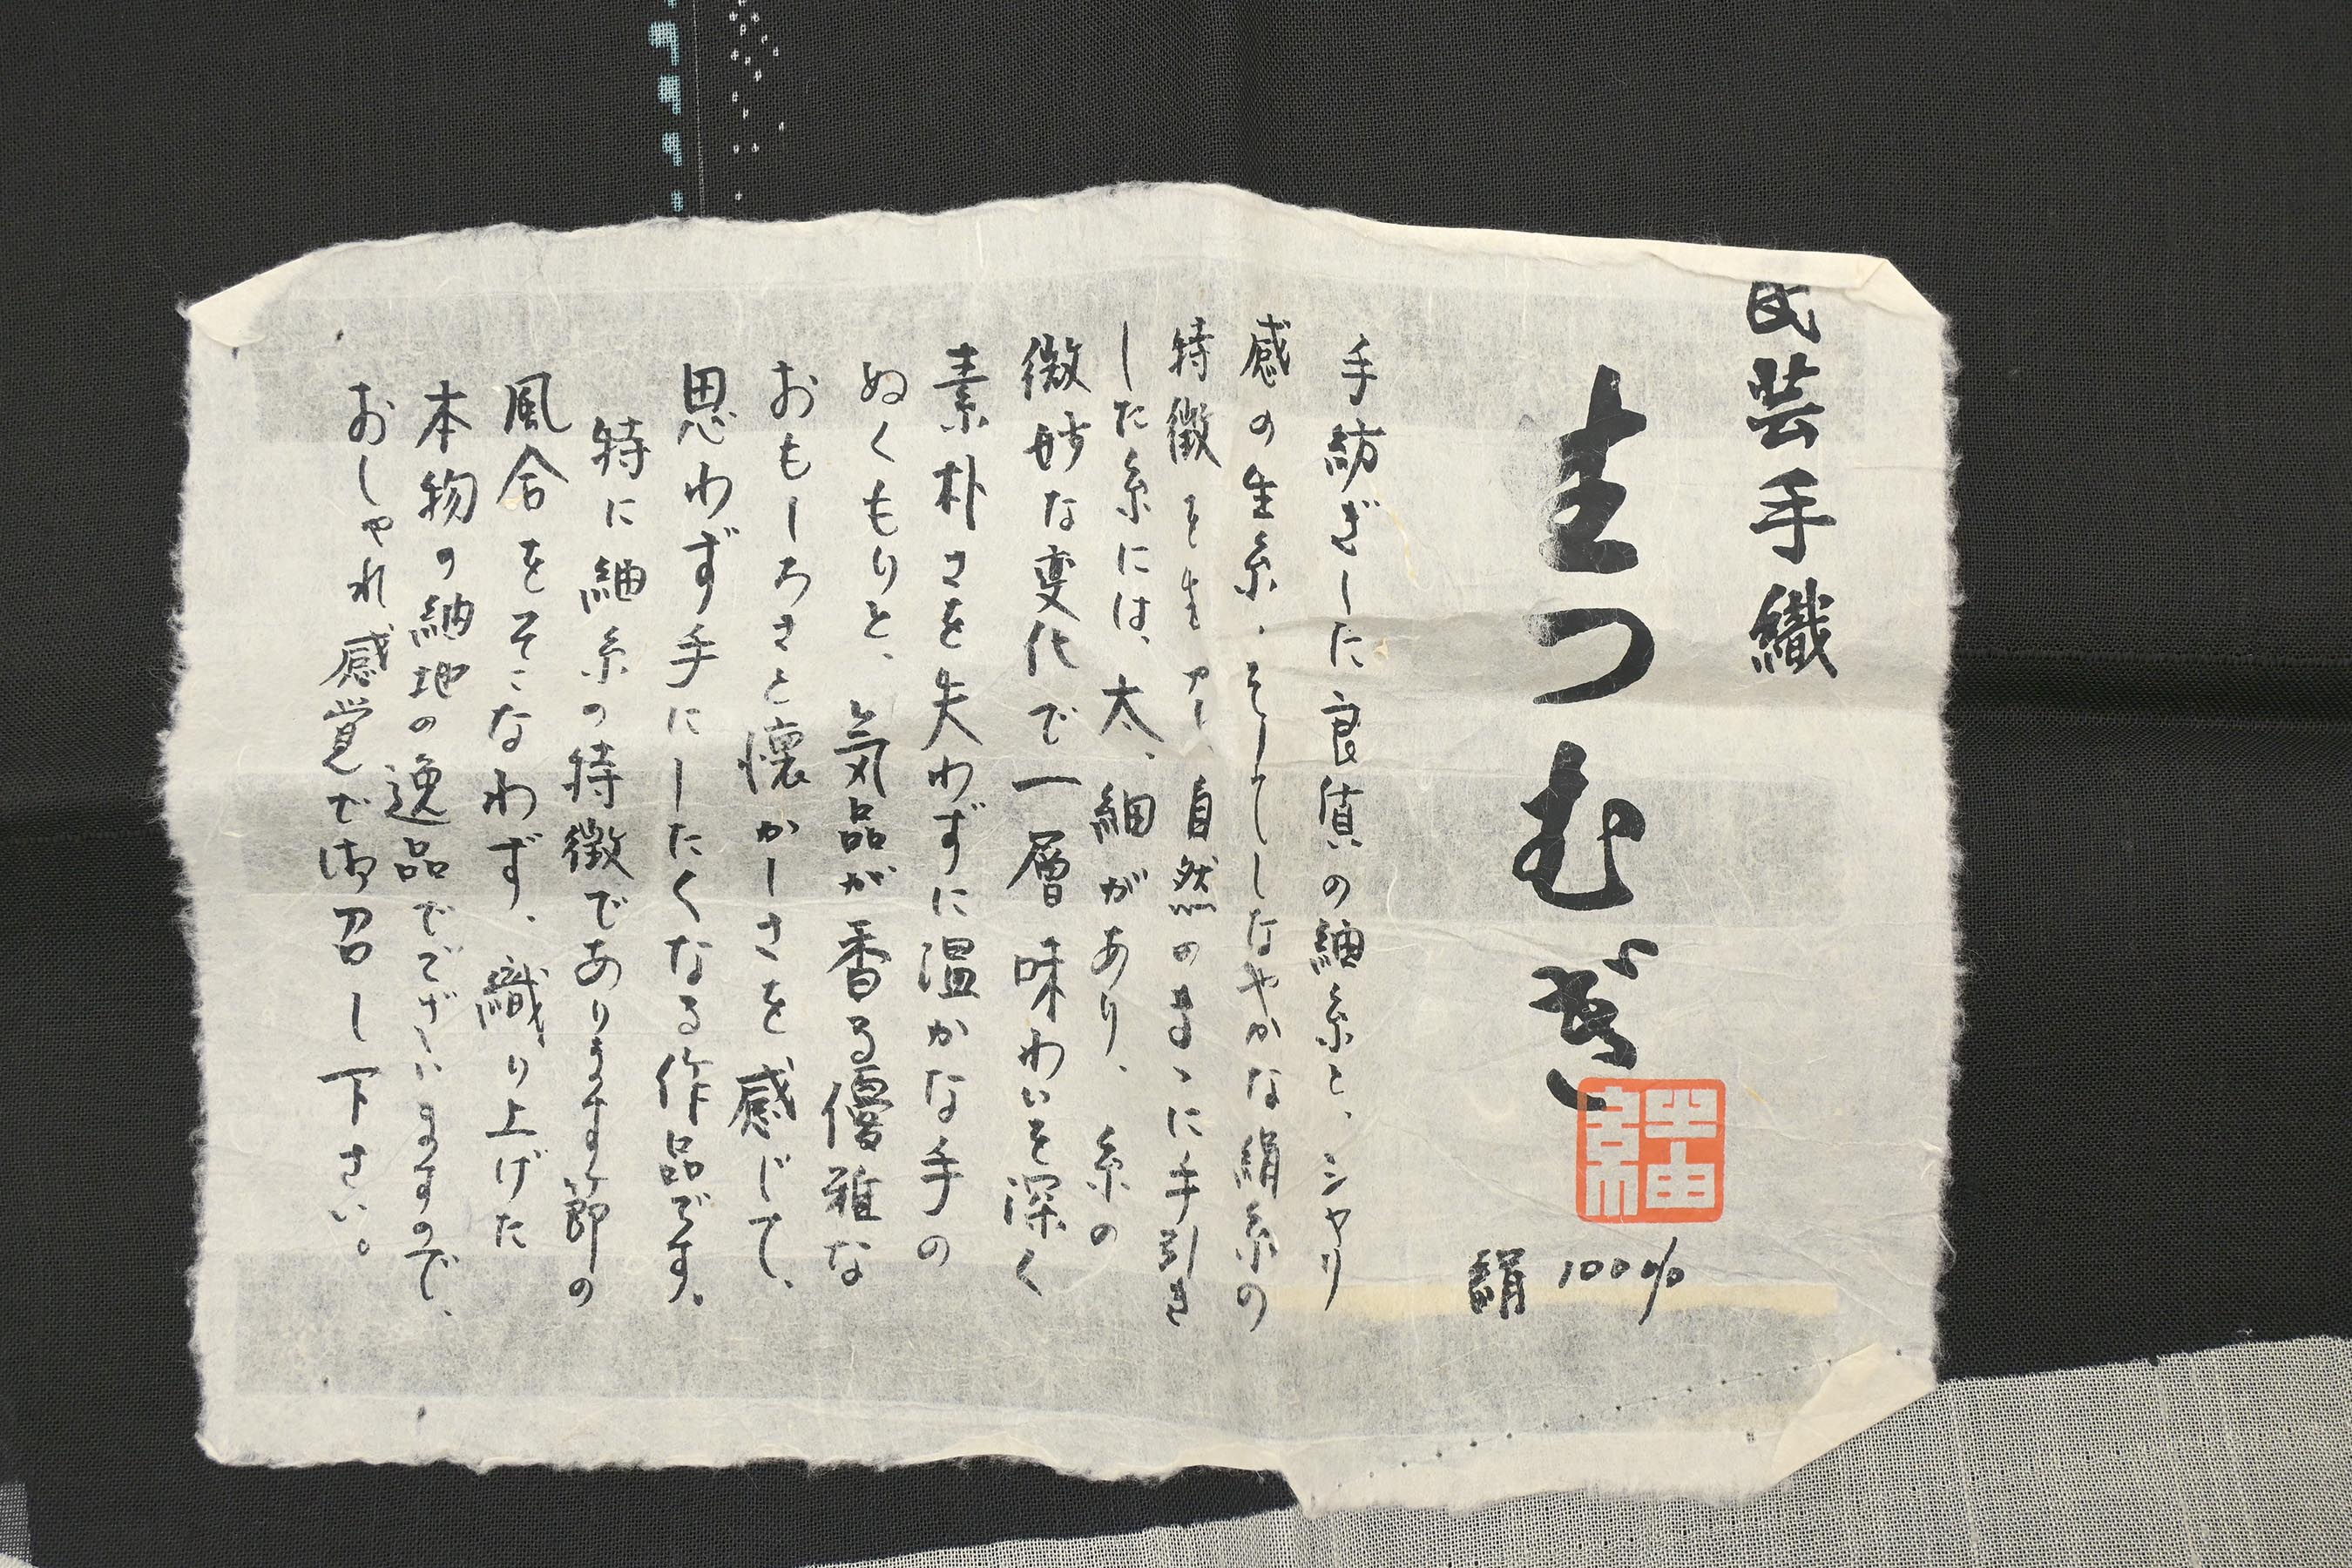 民芸手織
生つむぎ
絹100%
手紡ぎした良質の紬糸と、シャリ
感の生糸、そしてしなやかな絹糸の
特徴を生かし、自然のまゝに手引き
した糸には、太、細があり、糸の
微妙な変化で一層味わいを深く
素朴さを失わずに温かな手の
ぬくもりと、気品が香る優雅な
おもしろさと懐かしさを感じて、
思わず手にしたくなる作品です。
特に紬糸の特徴であります節の
風合をそこなわず、織り上げた
本物の紬地の逸品でございますので、
おしゃれ感覚で御召し下さい。